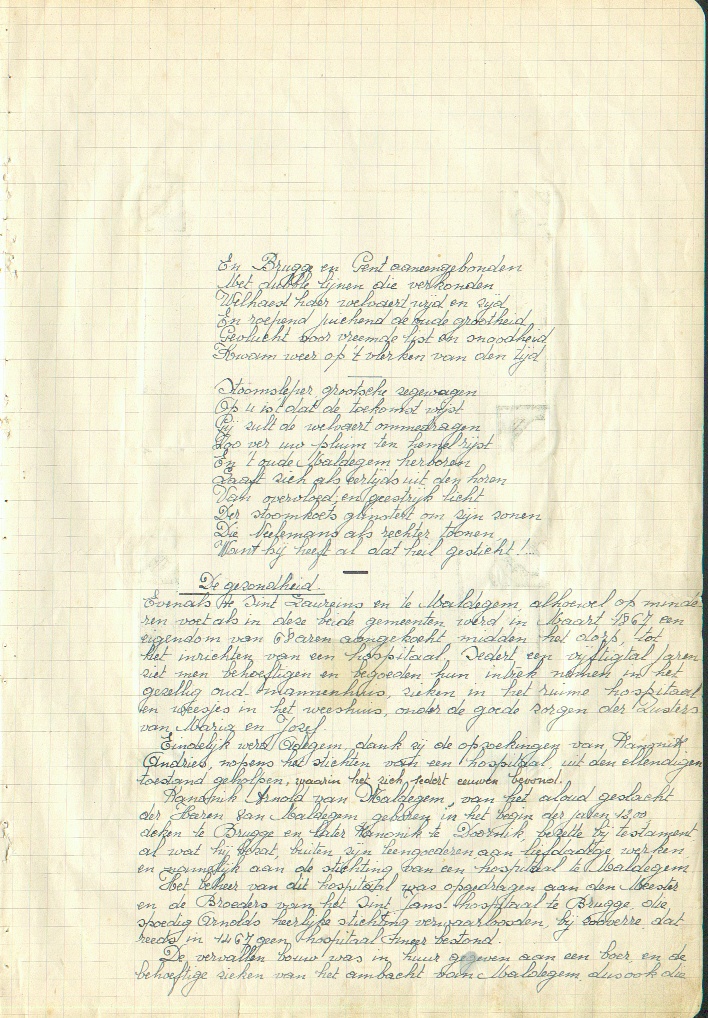 En Brugge en Gent aaneengebonden
Met dubble lijnen die verkonden
Welhaest haer welvaert wijd en zyd
En roepend juichend de oude grootheid
Gevlucht voor vreemde list en snoodheid
Kwam weer op 't vlerken van den tijd
Stoomsleper grootsche zegewagen
Op u ist dat de toekomst wijst
Gij zult de welvaert ommedragen
Zoo ver uw pluim ten hemel rijst
En 't oude Maldegem herboren
Laaft zich als eertijds uit den horen
Van overvloed en geestrijk licht
Der stoomkoets glinstert om zijn zonen
Die Neefemans als rechter toonen
Want hij heeft al dat heil gesticht !..
De gezondheid.
Evenals te Sint Laureins en te Maldegem, alhoewel op minde-
ren voet als in deze beide gemeenten werd in Maart 1867 een
eigendom van 68 aren aangekocht midden het dorp, tot
het inrichten van een hospitaal. Sedert een vijftigtal jaren
ziet men behoeftigen en begoeden hun intrek nemen in het
gezellig oud mannenhuis, zieken in het ruime hospitaal
en weesjes in het weeshuis, onder de goede zorgen der Zusters
van Maria en Jozef.
Eindelijk werd Adegem, dank zij de opzoekingen van Kanonik
Andries, nopens het stichten van een hospitaal, uit den ellendigen
toestand geholpen, waarin het zich sedert eeuwen bevond.
Kanonik Arnold van Maldegem, van het aloud geslacht
der Heren van Maldegem, geboren in het begin der jaren 1200
deken te Brugge en later Kanonik te Doornik, bezette bij testament
al wat hij bezat, buiten zijn leengoederen aan liefdadige werken
en namelijk aan de stichting van een hospitaal te Maldegem
Het beheer van dit hospitaal was opgedragen aan den Meester
en de Broeders van het Sint Jans hospitaal te Brugge, die
spoedig Arnolds heerlijke stichting verwaarloosden, bij zooverre dat
reeds in 1467 geen hospitaal meer bestond.
De vervallen bouw was in huur gegeven aan een boer, en de
behoeftige zieken van het ambacht van Maldegem, dus ook die